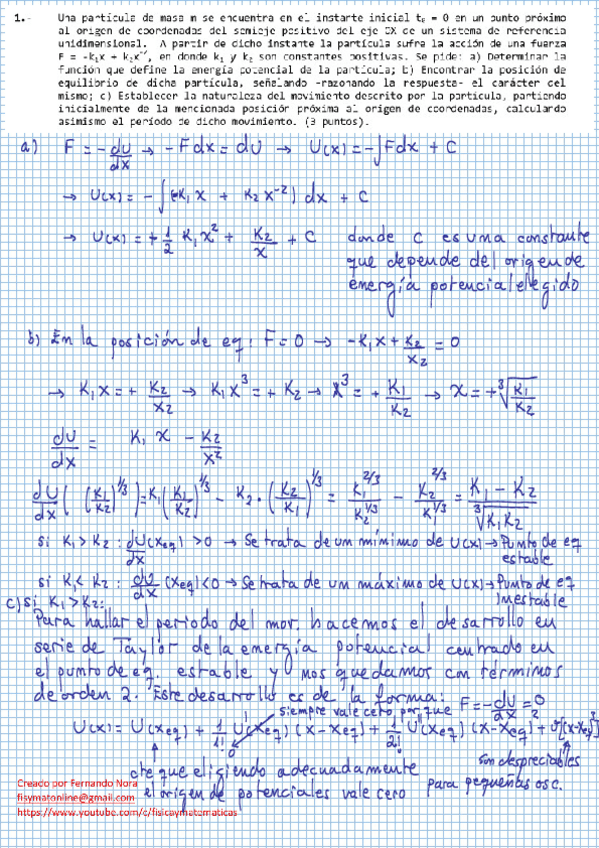 1.- Una partícula de masa m se encuentra en el instante inicial t₀ = 0 en un punto próximo
al origen de coordenadas del semieje positivo del eje OX de un sistema de referencia
unidimensional. A partir de dicho instante la partícula sufre la acción de una fuerza
F = -k₁x + k₂x⁻², en donde k₁ y k₂ son constantes positivas. Se pide: a) Determinar la
función que define la energía potencial de la partícula; b) Encontrar la posición de
equilibrio de dicha partícula, señalando -razonando la respuesta- el carácter del
mismo; c) Establecer la naturaleza del movimiento descrito por la partícula, partiendo
inicialmente de la mencionada posición próxima al origen de coordenadas, calculando
asimismo el período de dicho movimiento. (3 puntos).
a) F = -dU/dx → -Fdx = dU → U(x) = -∫Fdx + C
→ U(x) = -∫(-K₁x + K₂x⁻²) dx + C
→ U(x) = +1/2 K₁x² + K₂/x + C donde C es una constante
que depende del origen de
energía potencial elegido
b) En la posición de eq: F=0 → -K₁x + K₂/x₂ = 0
→ K₁x = + K₂/x₂ → K₁x³ = + K₂ → x³ = + K₁/K₂ → x = +∛(K₁/K₂)
dU/dx = K₁ x - K₂/x²
dU/dx ((K₁/K₂)^1/3) = K₁(K₁/K₂)^1/3 - K₂·(K₂/K₁)^1/3 = K₁^2/3/K₂^1/3 - K₂^2/3/K^1/3 = K₁-K₂/∛K₁K₂
si K₁>K₂ : dU/dx(xeq) >0 → Se trata de un mínimo de U(x) → Punto de eq
estable
si K₁<K₂ : dU/dx (xeq)<0 → Se trata de un máximo de U(x) → Punto de eq
inestable
c) si K₁>K₂:
Para hallar el periodo del mov. hacemos el desarrollo en
serie de Taylor de la energía potencial centrado en
el punto de eq. estable y nos quedamos con términos
de orden 2. Este desarrollo es de la forma:
siempre vale cero porque F=-dU/dx=0
U(x) = U(xeq) + 1/1! U'(xeq) (x-xeq) + 1/2! U''(xeq) (x-xeq)² + O[(x-xeq)³]
0
cte que eligiendo adecuadamente
el origen de potenciales vale cero
son despreciables
para pequeñas osc.
Creado por Fernando Nora
fisymatonline@gmail.com
https://www.youtube.com/c/fisicaymatematicas